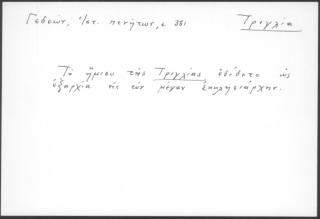 Γεδεών, Ἱστ. πενήτων, σ. 351 Τρίγλια
Τὸ ἥμισυ τῆς Τριγλίας ἐδίδετο ὡς
ἐξαρχία εἰς τὸν μέγαν ἐκκλησιάρχην.